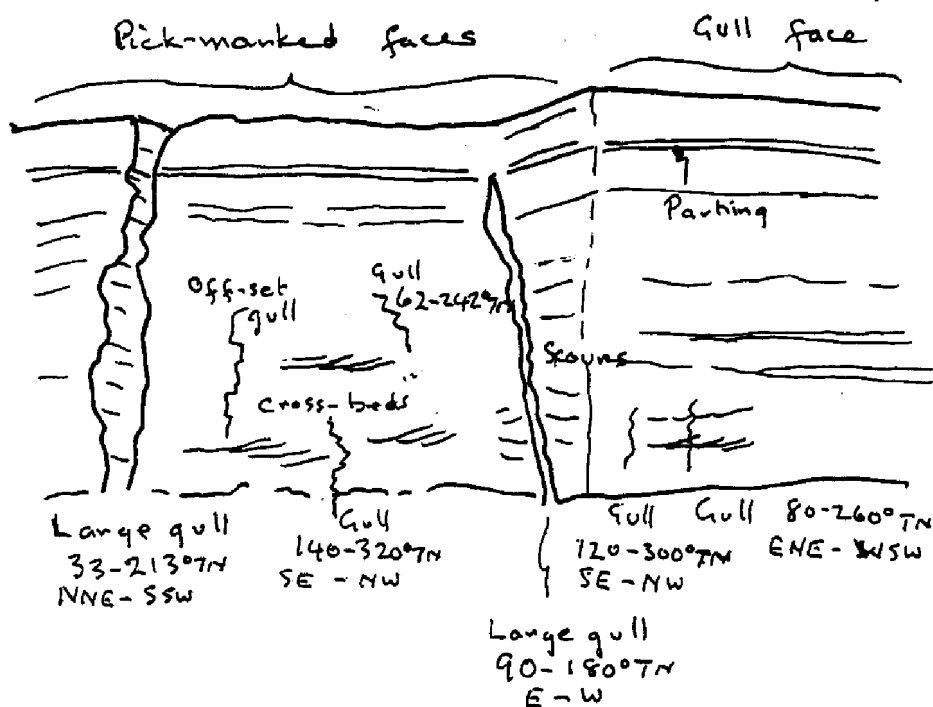 Pick-marked faces
Gull face
Parting
Off-set
gull
Gull
62-242°TN
Scours
cross-beds
Large gull
33-213°TN
NNE-SSW
Gull
140-320°TN
SE-NW
Gull
120-300°TN
SE-NW
Gull
80-260°TN
ENE-WSW
Large gull
90-180°TN
E-W